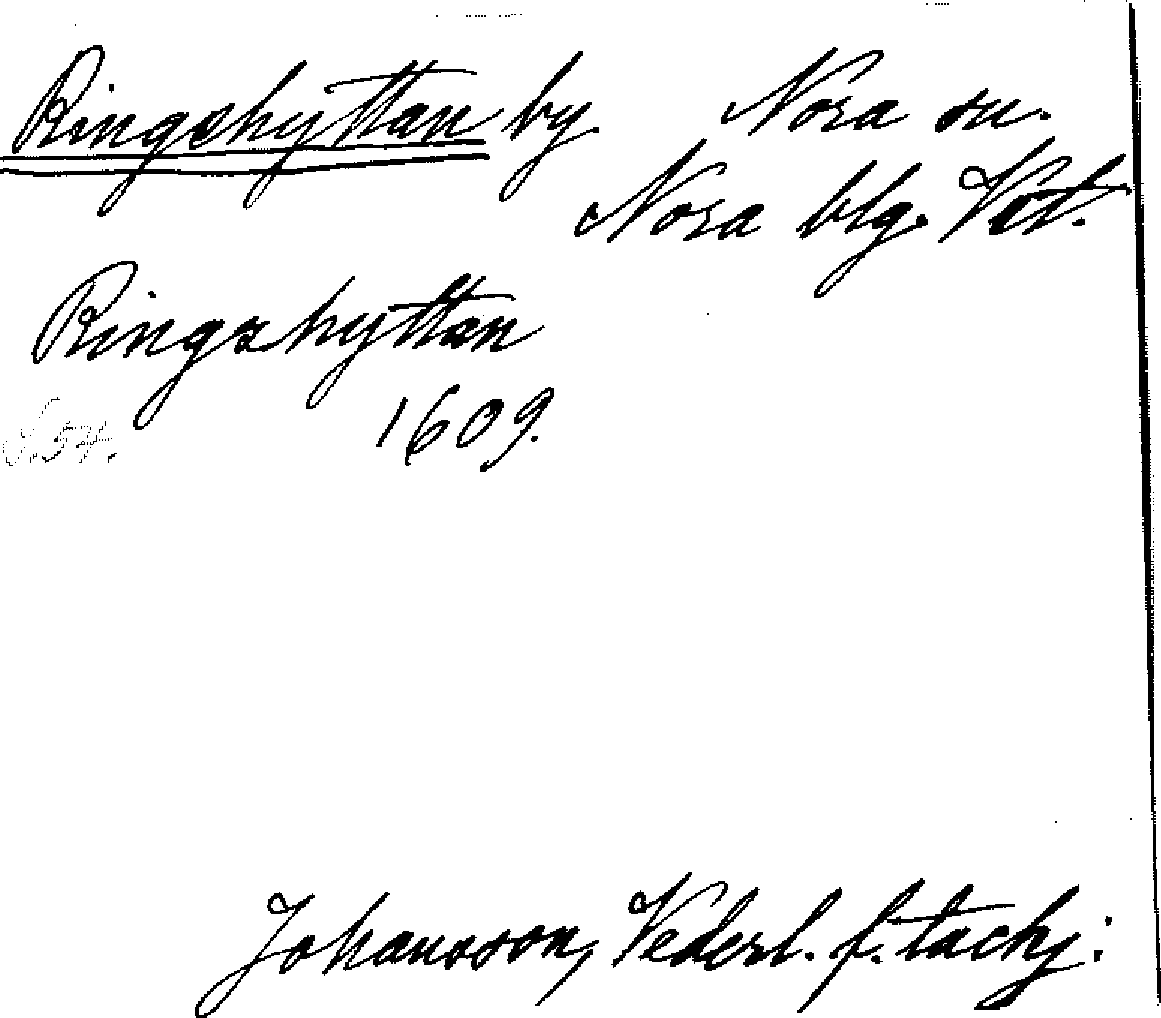 Ringshyttan by. Nora sn.
Nora blg. Vst.
Ringshyttan
S. 54. 1609.
Johansson, Vederl. f. tackj: